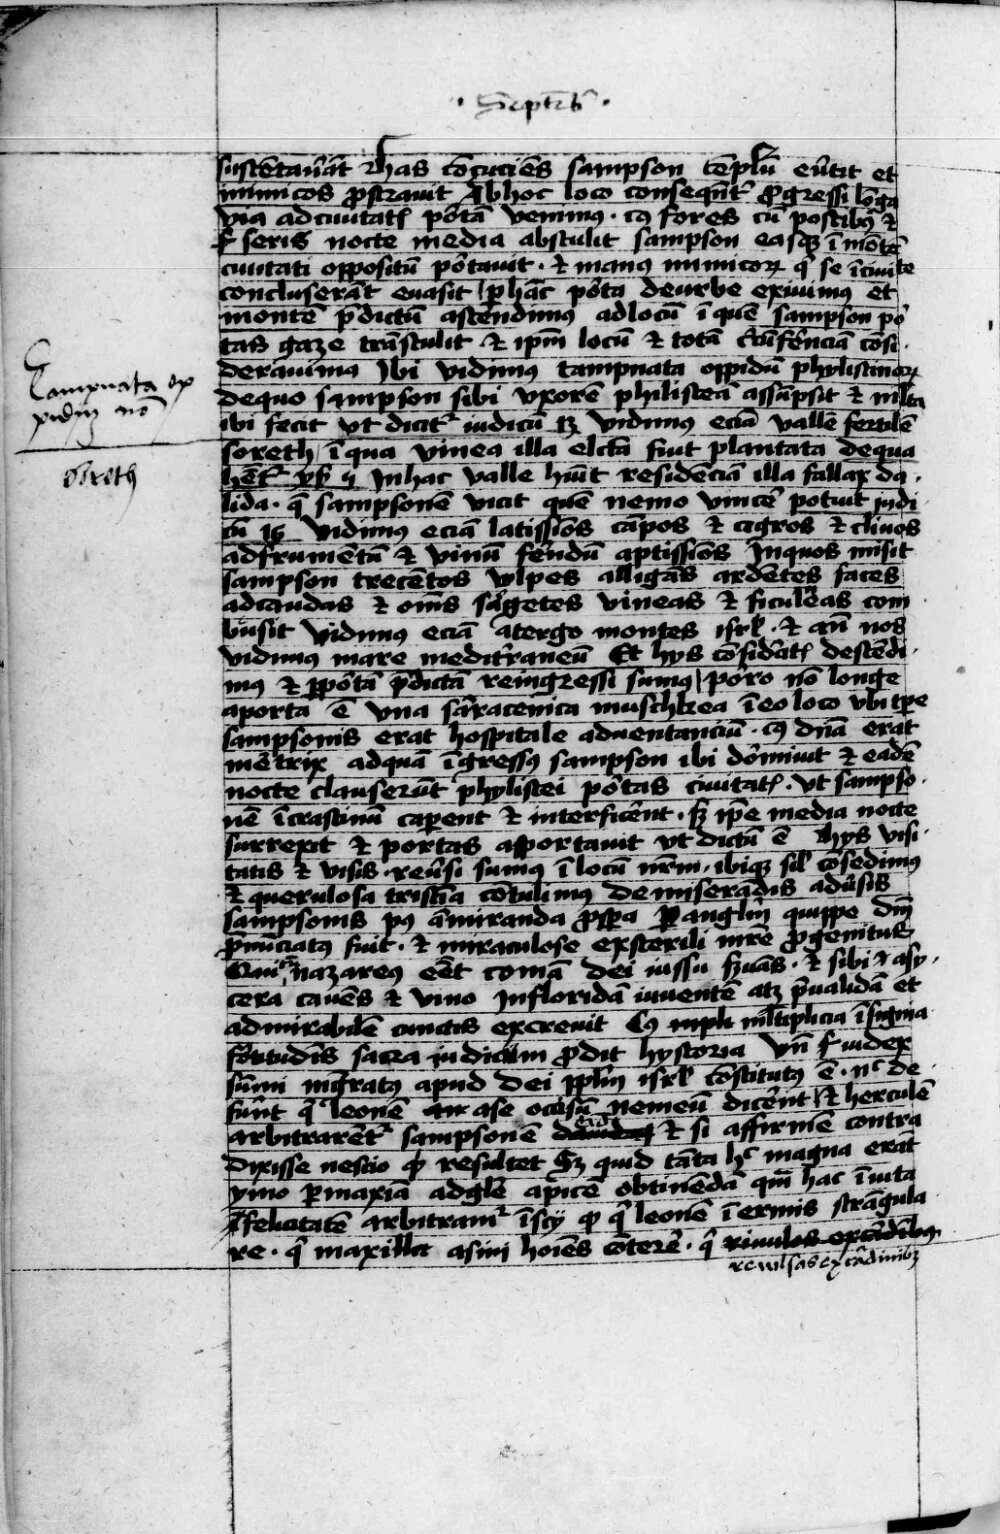 · Septēb̄ ·
sustētau̅āt et has cōcuciēs sampson tēplū eu̅tit et
inimicos prostrauit Ab hoc loco conseqn̄ter progressi lōga
via ad ciuitatis portā venimus · cuius fores cū postibus et
seris nocte media abstulit sampson easque ī mōtē
ciuitati oppositū portauit · et manus inimicorum qui se ī ciuitate
concluserāt euasit per hāc portā de urbe exiuimus et
montē predictū ascendimus ad locū ī quē sampson por
tas gaze trāstulit et ipm̄ locū et totā circūferēnciā cōsi
derauimus Ibi vidimus tampnata oppidū phylistinorum
Tampnata op
pidum
de quo sampson sibi vxorē philisteā assūpsit et multa
ibi fecit vt dicitur iudicū 13 Vidimus eciā vallē fertilē
soreth ī qua vinea illa electa fuit plantata de qua
Soreth
habetur ysa 5 In hac valle habuit residēciā illa fallax da
lida · que sampsonē vicit quē nemo vincere potuit iudi
cū 16 Vidimus eciā latissimos cāpos et agros et cliuos
ad frumentū et vinū ferendū aptissimos In quos misit
sampson trecētos vulpes alligās ardētes faces
ad caudas et om̄s segetes vineas et ficulneas com
busit Vidimus eciā a tergo montes isrl · et an̄ nos
vidimus mare mediterraneū Et hys cōsideratis descēdi
mus et per portā predictā reingressi sumus porro nō longe
a porta ē vna sarracenica muschkea ī eo loco vbi tpe
sampsonis erat hospitale aduentanciū · cuius dn̄a erat
meretrix ad quā īgressus sampson ibi dormiuit et eadē
nocte clauserūt phylistei portas ciuitatis · vt sampso
nē ī crastinū caperent et interficerēt · sed ipe media nocte
surrexit et portas asportauit vt dictū ē hys visi
tatis et visis · reuersi sumus ī locū nrm̄ · ibique simul cōsedimus
et querulosa tristicia cōtulimus de miserādis aduersis
sampsonis post admiranda prospera Per angelū quippe dei
pronūciatus fuit · et miraculose ex sterili matre progenitus
Qui nazareus erat comā dei iussu seruās · et sibi a sy
cera cauēs et vino In floridā iuuentutē atque preualidā et
admirabilē cunctis excreuit Cuius multiplicia īsignia
fortitudinis sacra iudicum prodit hystoria Vn̄ iudex
summi mgratus apud dei pplm̄ isrl cōstitutus ē · nec de
fuerūt qui leonē ab eo occisū nemeū dicerent et herculē
arbitrarētur sampsonē et si affirmē contra
dixisse nescio quod resultet Sed quid tāta hec magna erat
ymo permaxiā ad glorie apicē obtinēdā quā hac ī vita
felicitatē arbitramur īscii quod qui leonē īermis strāgula
re · qui maxilla asini hoīes cōterere · qui riuulos
reuulsas ex cardinibus